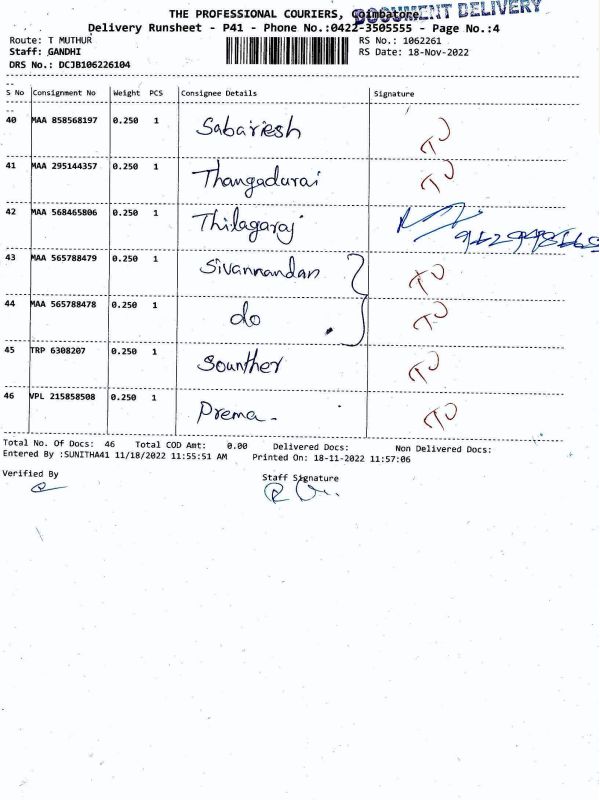 THE PROFESSIONAL COURIERS, Coimbatore
DOCUMENT DELIVERY
Delivery Runsheet - P41 - Phone No.:0422-3505555 - Page No.:4
Route: T MUTHUR RS No.: 1062261
Staff: GANDHI RS Date: 18-Nov-2022
DRS No.: DCJB106226104
S No Consignment No Weight PCS Consignee Details Signature
40 MAA 858568197 0.250 1 Sabariesh
41 MAA 295144357 0.250 1 Thangadurai
42 MAA 568465806 0.250 1 Thilagaraj
43 MAA 565788479 0.250 1 Sivannandan
44 MAA 565788478 0.250 1 do
45 TRP 6308207 0.250 1 Sounther
46 VPL 215858508 0.250 1 Prema.
Total No. Of Docs: 46 Total COD Amt: 0.00 Delivered Docs: Non Delivered Docs:
Entered By :SUNITHA41 11/18/2022 11:55:51 AM Printed On: 18-11-2022 11:57:06
Verified By Staff Signature